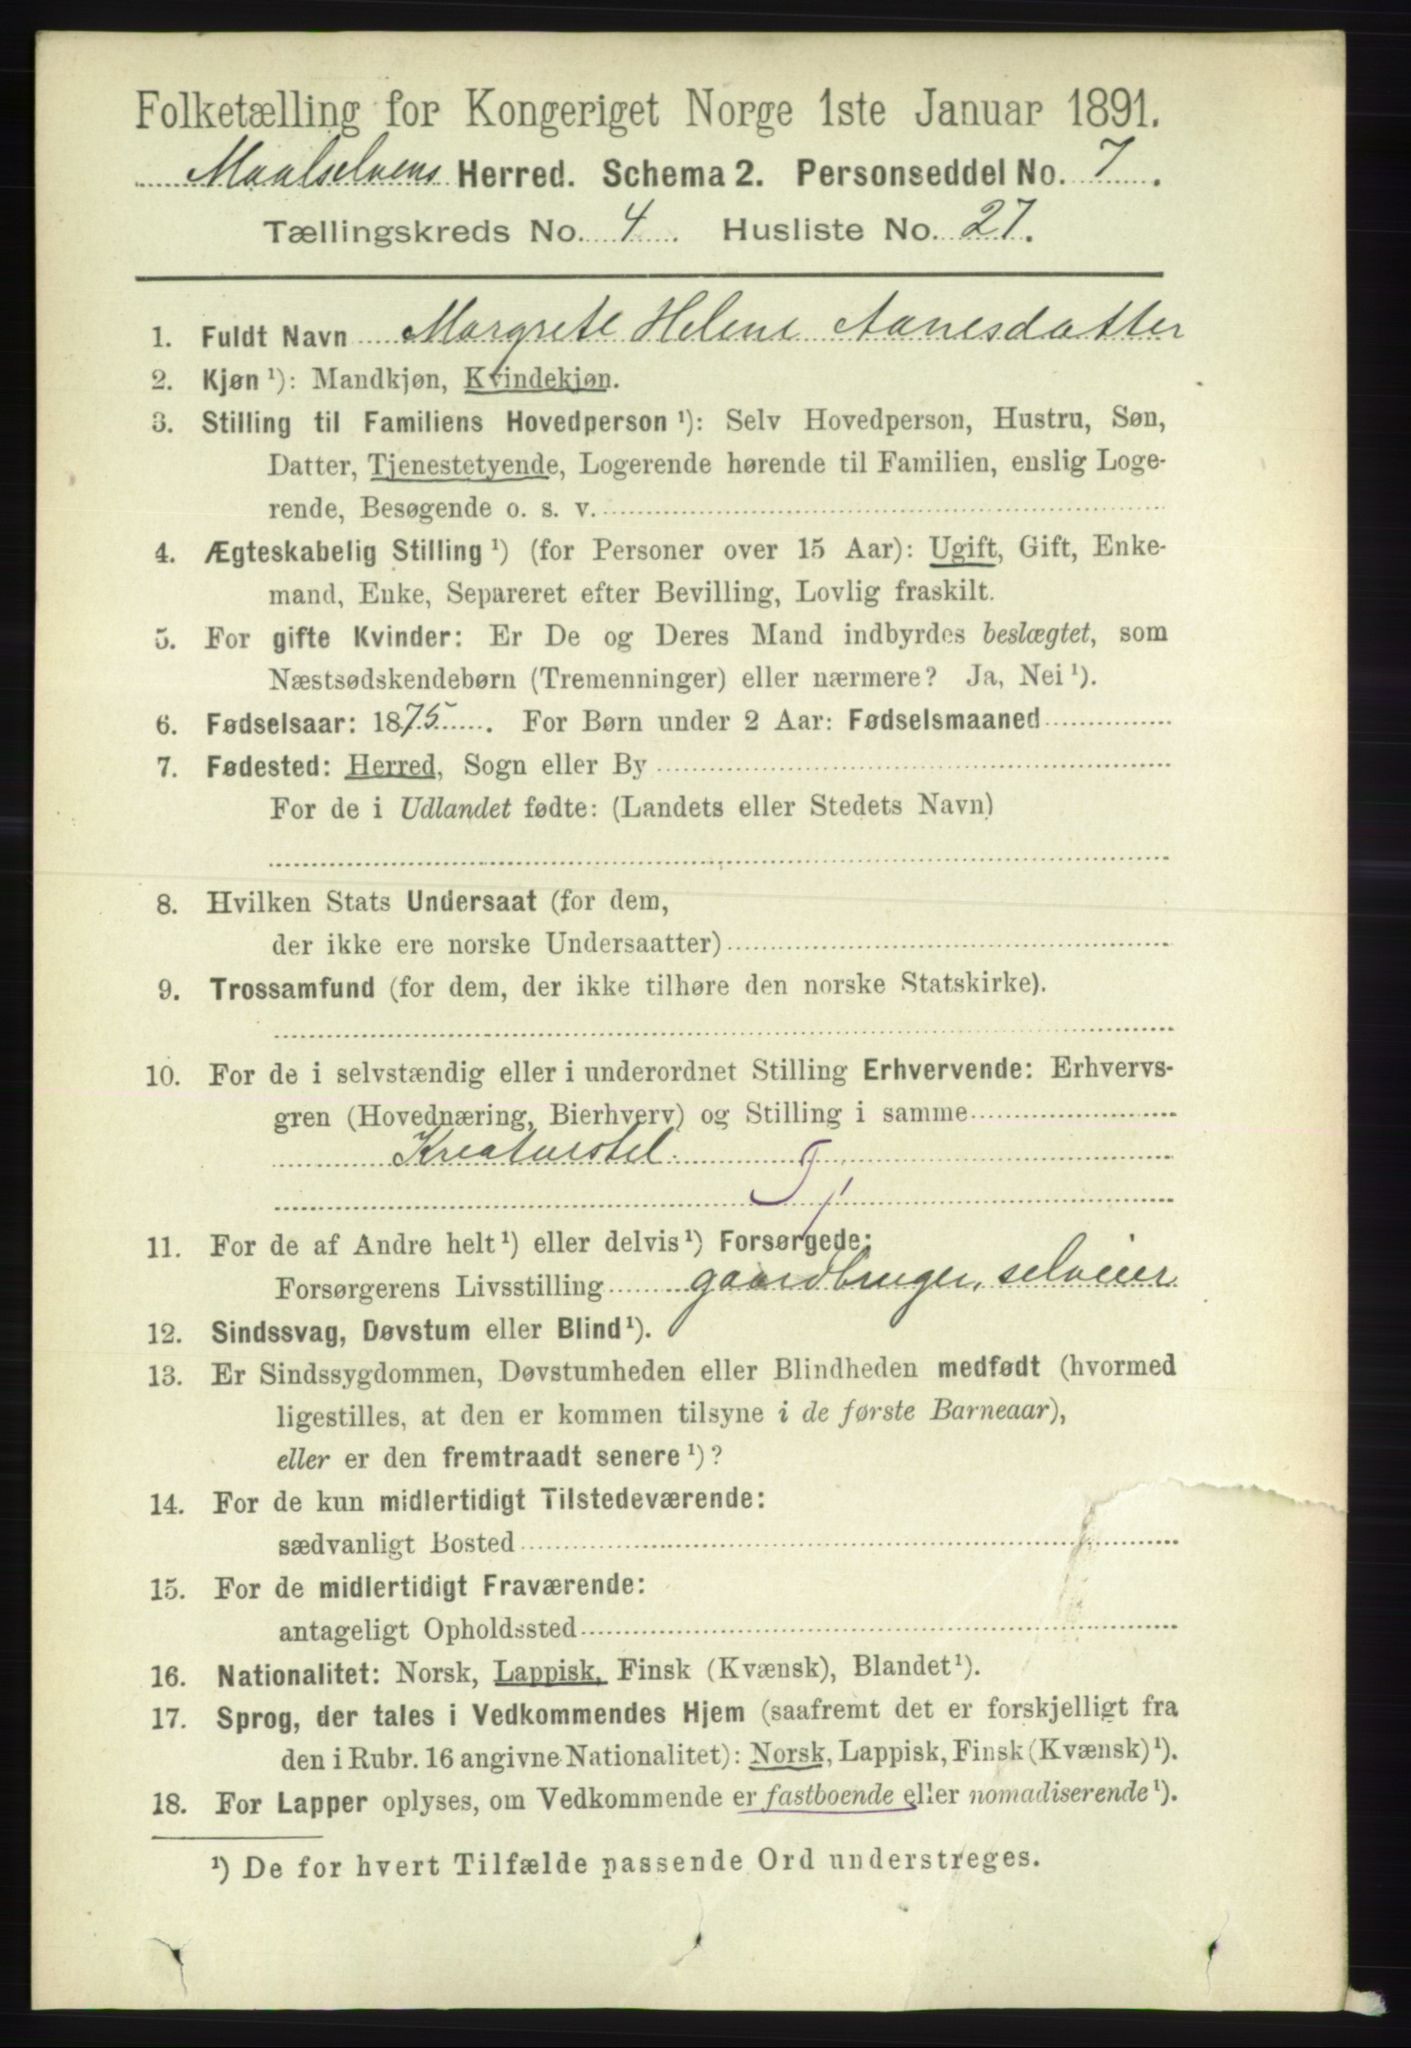 Folketælling for Kongeriget Norge 1ste Januar 1891.
Maalselvens Herred. Schema 2. Personseddel No. 7.
Tællingskreds No. 4. Husliste No. 27.
1. Fuldt Navn Margrete Helene Aanesdatter
2. Kjøn ¹): Mandkjøn, Kvindekjøn.
3. Stilling til Familiens Hovedperson ¹): Selv Hovedperson, Hustru, Søn,
Datter, Tjenestetyende, Logerende hørende til Familien, enslig Loge-
rende, Besøgende o. s. v.
4. Ægteskabelig Stilling ¹) (for Personer over 15 Aar): Ugift, Gift, Enke-
mand, Enke, Separeret efter Bevilling, Lovlig fraskilt.
5. For gifte Kvinder: Er De og Deres Mand indbyrdes beslægtet, som
Næstsødskendebørn (Tremenninger) eller nærmere? Ja, Nei ¹).
6. Fødselsaar: 1875. For Børn under 2 Aar: Fødselsmaaned
7. Fødested: Herred, Sogn eller By
For de i Udlandet fødte: (Landets eller Stedets Navn)
8. Hvilken Stats Undersaat (for dem,
der ikke ere norske Undersaatter)
9. Trossamfund (for dem, der ikke tilhøre den norske Statskirke).
10. For de i selvstændig eller i underordnet Stilling Erhvervende: Erhvervs-
gren (Hovednæring, Bierhverv) og Stilling i samme
Kreaturstel.
11. For de af Andre helt ¹) eller delvis ¹) Forsørgede:
Forsørgerens Livsstilling gaardbruger, selveier
12. Sindssvag, Døvstum eller Blind ¹).
13. Er Sindssygdommen, Døvstumheden eller Blindheden medfødt (hvormed
ligestilles, at den er kommen tilsyne i de første Barneaar),
eller er den fremtraadt senere ¹)?
14. For de kun midlertidigt Tilstedeværende:
sædvanligt Bosted
15. For de midlertidigt Fraværende:
antageligt Opholdssted
16. Nationalitet: Norsk, Lappisk, Finsk (Kvænsk), Blandet ¹).
17. Sprog, der tales i Vedkommendes Hjem (saafremt det er forskjelligt fra
den i Rubr. 16 angivne Nationalitet): Norsk, Lappisk, Finsk (Kvænsk) ¹).
18. For Lapper oplyses, om Vedkommende er fastboende eller nomadiserende ¹).
¹) De for hvert Tilfælde passende Ord understreges.